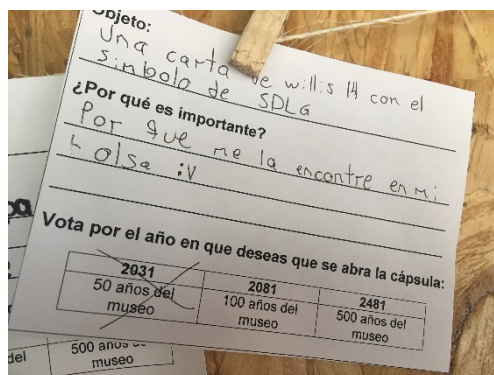 Objeto:
Una carta de willis 14 con el
simbolo de SDLG
¿Por qué es importante?
Por que me la encontre en mi
bolsa :v
Vota por el año en que deseas que se abra la cápsula:
2031 2081 2481
50 años del museo 100 años del museo 500 años del museo
del 500 años museo